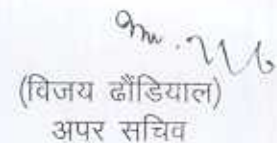 (विजय ढौंडियाल)
अपर सचिव